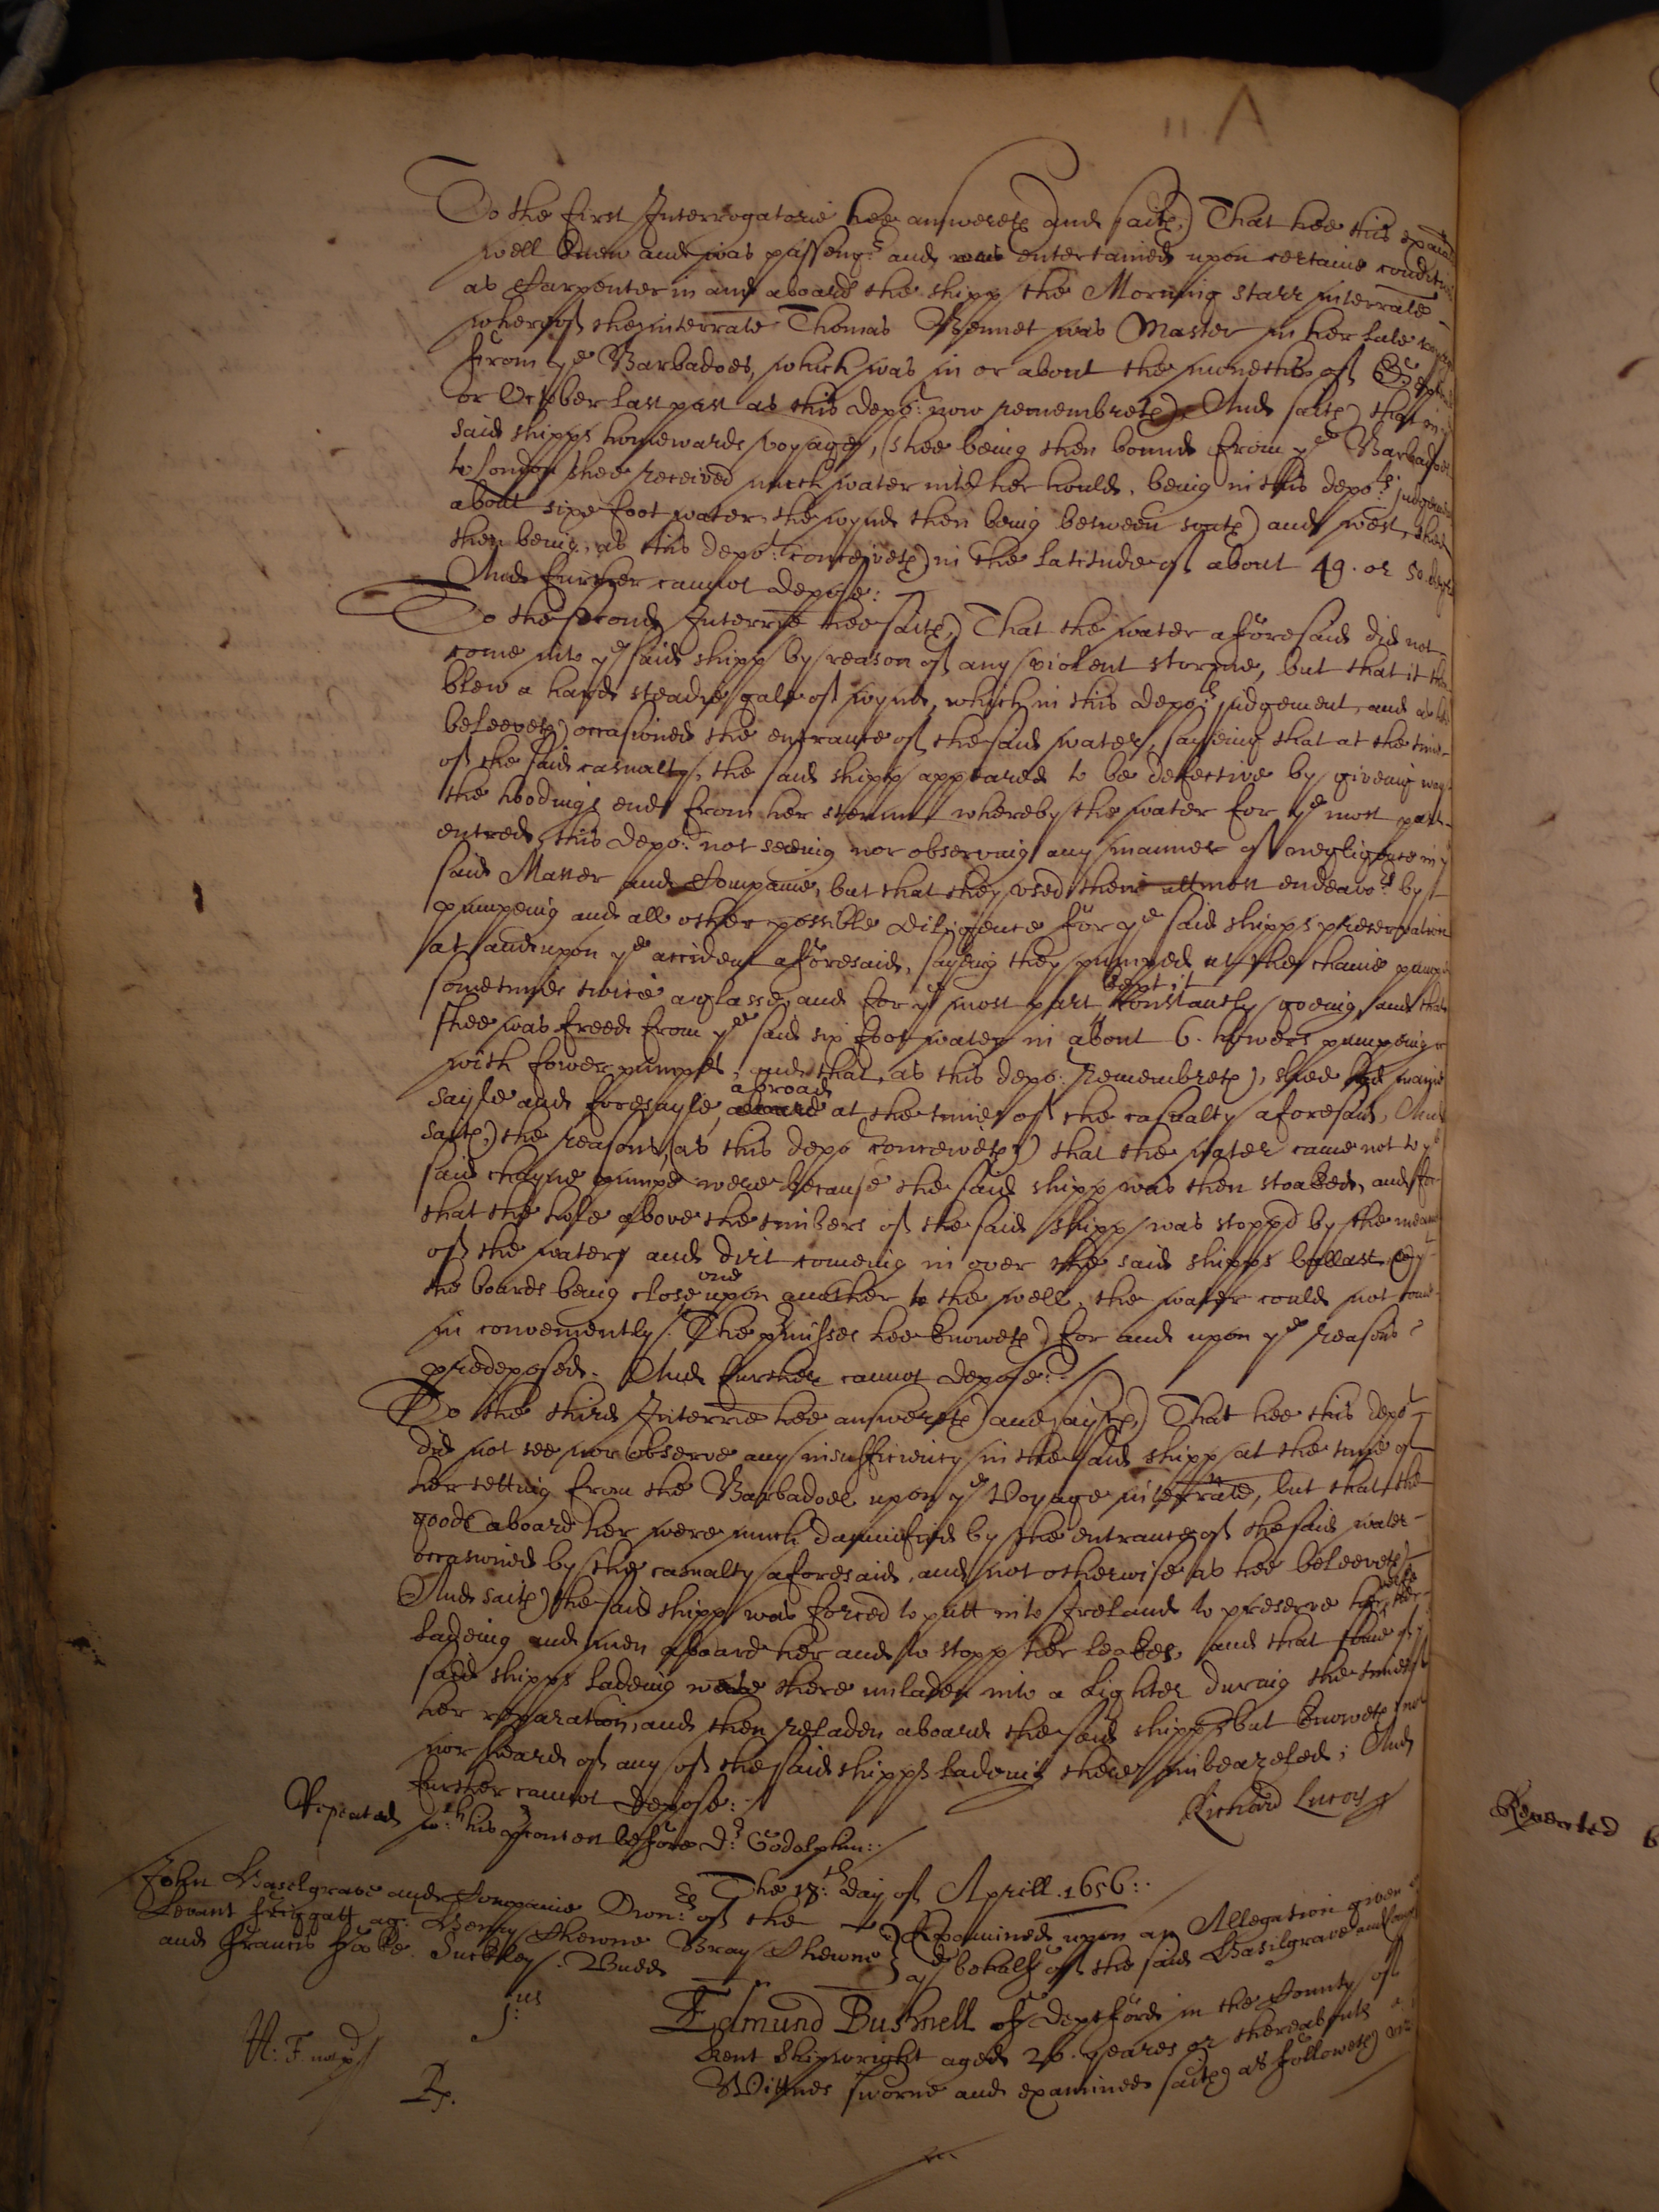 11. A
To the first Interrogatorie hee answereth and saith, That hee this examinate
well knew and was passengr. and was entertained upon certaine conditions
as Carpenter in and aboard the shipp the Morning Starr interrate
whereof the interrate Thomas Bennet was Master in her late voyage
from ye Barbadoes, which was in or about the moneths of
or October last past as this depot: now remembreth, And saith that in ye
said shipps homewards voyage, (shee being then bound from ye Barbadoes
to London shee received much water into her hould, being in this depots judgement
about sixe foot water, the wynde then being between south and west, shee
then being, as this depot: conceiveth, in the latitude of about 49. or 50. degrees
And further cannot depose:
To the second Interrie hee saith, That the water aforesaid did not
come into ye said shipp by reason of any violent storme, but that it then
blew a hard steadie gale of wynde, which in this depots judgement, and as hee
beleeveth occasioned the entrance of the said water, sayeing that at the time
of the said casualty, the said shipp appeared to be defective by giveing way
the hoodings ends from her stemm whereby the water for ye most part
entred, this depot: not seeing nor observing any manner of negligence in ye
said Master and Companie, but that they used their uttmost endeavors by
pumpeing and all other possible diligence for ye said shipps preservation
at and upon ye accident aforesaid, sayeing they pumped at the chaine pumpe
sometimes twice a glasse, and for ye most part kept it constantly goeing, and that
shee was freed from ye said six foot water in about 6. howers pumpeing
with fower pumpes, and that, as this depot: remembreth, shee had mayne
sayle and foresayle, aboard abroad at the time of the casualty aforesaid, And
saith, the reasons, (as this depot conceiveth) that the water came not to ye
said chayne pumpe were because the said shipp was then stoaked, and for
that the hole above the timbers of the said shipp was stoppd by the meanes
of the water and dirt comeing in over the said shipps ballast, &
the boards being close one upon another to the well, the water could not come
in conveniently. The premisses hee knoweth for and upon ye reasons
predeposed. And further cannot depose:
To the third Interrie hee answereth and sayth, That hee this depot
did not see nor observe any insufficiency in the said shipp at the time of
her setting from the Barbadoes upon ye Voyage interrate, but that the
goods aboard her were much damnified by the entrance of the said water
occasioned by the casualty aforesaid, and not otherwise as hee beleeveth
And saith the said shipp was forced to putt into Ireland to preserve her
ladeing and men aboard her and to stopp her leakes, and that some of ye
said shipps ladeing were there unladen into a lighter during the time of
her reparation, and then reladen aboard the said shipp, but knoweth not
nor heard of any of the said shipps ladeing there imbeazeled; And
further cannot depose:
Richard Lucas
Repeated wth. his precontest before Dr. Godolphin:
The 18th: day of Aprill. 1656:
John Haselgrave and Companie Owners of the
Levant friggatt agt: Henry Thewne Bray Thewne
and Francis Fooke. Suckley. Budd.
Examined upon an Allegation given
behalfe of the said Hasilgrave and
1us
Edmund Bushnell of Deptford in the County of
Kent Shipwright aged 26. yeares or thereabouts a
Wittnes sworne and examined saith as followeth
Rp.